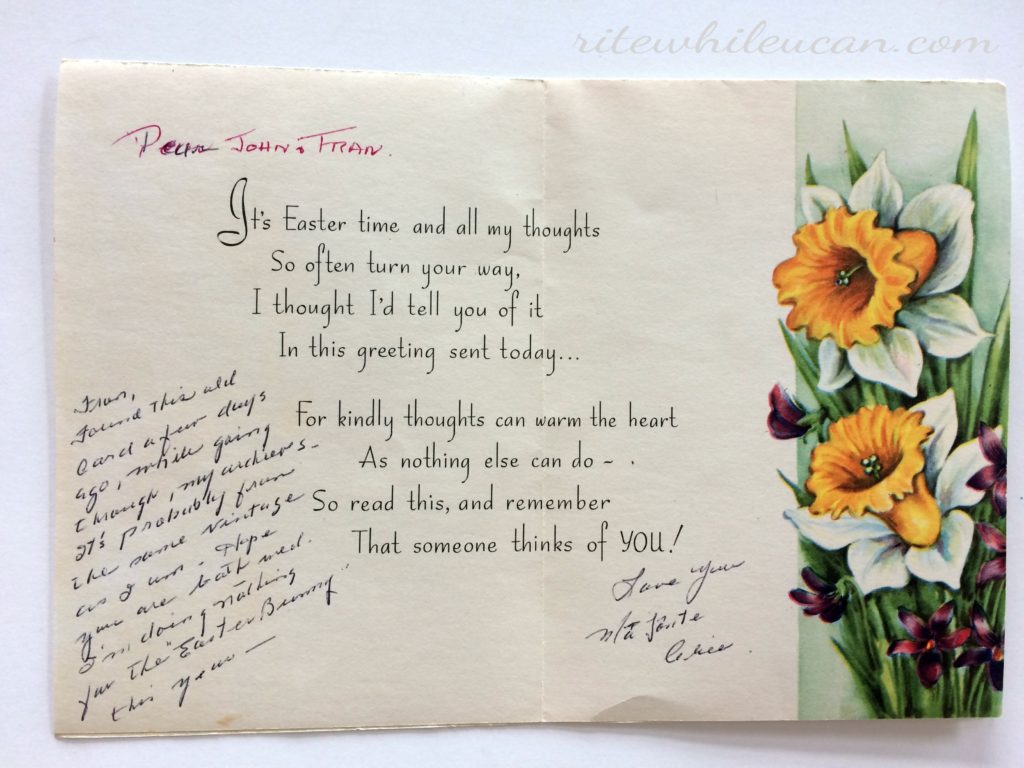 ritewhileucan.com
Dear JOHN & FRAN.
It's Easter time and all my thoughts
So often turn your way,
I thought I'd tell you of it
In this greeting sent today...
For kindly thoughts can warm the heart
As nothing else can do –
So read this, and remember
That someone thinks of YOU!
Fran,
Found this old
card a few days
ago, while going
through, my archieves –
It's probably from
the same vintage
as I am – Hope
you are both well.
I'm doing nothing
for the "Easter Bunny"
this year –
Love you
Ma Tante